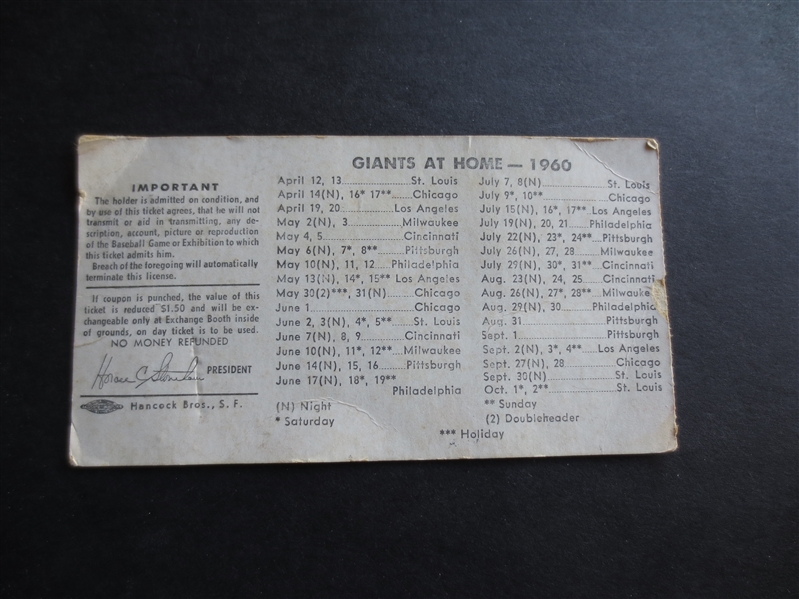 IMPORTANT
The holder is admitted on condition, and
by use of this ticket agrees, that he will not
transmit or aid in transmitting, any de-
scription, account, picture or reproduction
of the Baseball Game or Exhibition to which
this ticket admits him.
Breach of the foregoing will automatically
terminate this license.
If coupon is punched, the value of this
ticket is reduced $1.50 and will be ex-
changeable only at Exchange Booth inside
of grounds, on day ticket is to be used.
NO MONEY REFUNDED
Horace C Stoneham PRESIDENT
Hancock Bros., S. F.
GIANTS AT HOME — 1960
April 12, 13 St. Louis
April 14(N), 16* 17** Chicago
April 19, 20 Los Angeles
May 2(N), 3 Milwaukee
May 4, 5 Cincinnati
May 6(N), 7*, 8** Pittsburgh
May 10(N), 11, 12 Philadelphia
May 13(N), 14*, 15** Los Angeles
May 30(2)***, 31(N) Chicago
June 1 Chicago
June 2, 3(N), 4*, 5** St. Louis
June 7(N), 8, 9 Cincinnati
June 10(N), 11*, 12** Milwaukee
June 14(N), 15, 16 Pittsburgh
June 17(N), 18*, 19**
Philadelphia
(N) Night
* Saturday
July 7, 8(N) St. Louis
July 9*, 10** Chicago
July 15(N), 16*, 17** Los Angeles
July 19(N), 20, 21 Philadelphia
July 22(N), 23*, 24** Pittsburgh
July 26(N), 27, 28 Milwaukee
July 29(N), 30*, 31** Cincinnati
Aug. 23(N), 24, 25 Cincinnati
Aug. 26(N), 27*, 28** Milwaukee
Aug. 29(N), 30 Philadelphia
Aug. 31 Pittsburgh
Sept. 1 Pittsburgh
Sept. 2(N), 3*, 4** Los Angeles
Sept. 27(N), 28 Chicago
Sept. 30(N) St. Louis
Oct. 1*, 2** St. Louis
** Sunday
(2) Doubleheader
*** Holiday